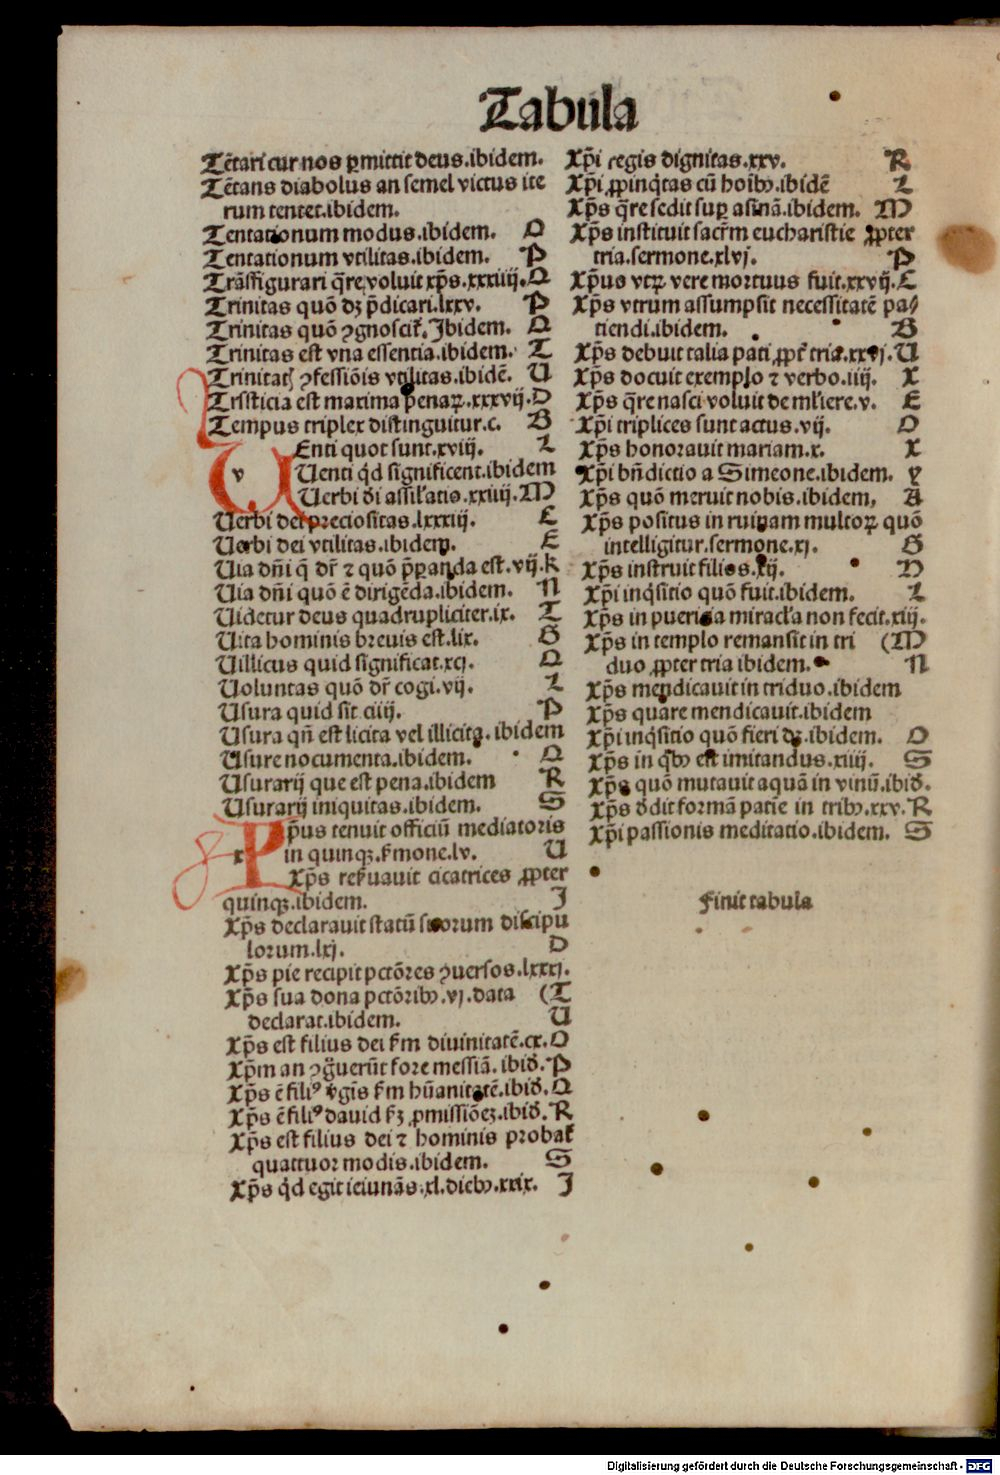 Tabula
Tẽtari cur nos ꝑmittit deus.ibidem.
Tẽtans diabolus an semel victus ite
rum tentet.ibidem.
Tentationum modus.ibidem. O
Tentationum vtilitas.ibidem. P
Trãsfigurari q̃re voluit xp̃s.xxxiiij. Q
Trinitas quõ dꝫ p̃dicari.lxxv. P
Trinitas quõ ꝯgnoscit̃.Ibidem. Q
Trinitas est vna essentia.ibidem. T
Trinitatꝭ ꝯfessiõis vtilitas.ibidẽ. U
Tristicia est maxima penaꝝ.xxxvij. D
Tempus triplex distinguitur.c. B
v
UEnti quot sunt.xviij. L
Uenti q̃d significent.ibidem
Uerbi d̃i assil̃atio.xxiiij. M
Uerbi dei preciositas.lxxxiij. E
Uerbi dei vtilitas.ibidem. E
Uia dñi q̃ dr̃ ⁊ quõ p̃ꝑanda est.vij. K
Uia dñi quõ ẽ dirigẽda.ibidem. N
Uidetur deus quadrupliciter.ix. T
Uita hominis breuis est.lix. G
Uillicus quid significat.xcj. Q
Uoluntas quõ dr̃ cogi.vij. L
Usura quid sit.ciij. P
Usura qñ est licita vel illicita.ibidem
Usure nocumenta.ibidem. Q
Usurarij que est pena.ibidem R
Usurarij iniquitas.ibidem. S
x
Xp̃us tenuit officiũ mediatoris
in quinqꝫ.s̃mone.lv. U
Xp̃s res̃uauit cicatrices ꝓpter
quinqꝫ.ibidem. I
Xp̃s declarauit statũ suorum discipu
lorum.lxj. D
Xp̃s pie recipit pctõres ꝯuersos.lxxxj.
Xp̃s sua dona pctõribꝰ.vj.data (T
declarat.ibidem. U
Xp̃s est filius dei s̃m diuinitatẽ.cx. O
Xp̃m an ꝯg̃uerũt fore messiã.ibid̃. P
Xp̃s ẽ filiꝰ v̓gĩs s̃m hũanitatẽ.ibid̃. Q
Xp̃s ẽ filiꝰ dauid s̃ꝫ ꝓmissiõeꝫ.ibid̃. R
Xp̃s est filius dei ⁊ hominis probat̃
quattuor modis.ibidem. S
Xp̃s q̃d egit ieiunãs.xl.diebꝰ.xxix. I
Xp̃i regis dignitas.xxv. R
Xp̃i ꝓpinq̃tas cũ hoĩbꝰ.ibidẽ L
Xp̃s q̃re sedit suꝑ asinã.ibidem. M
Xp̃s instituit sacr̃m eucharistie ꝓpter
tria.sermone.xlvj. P
Xp̃us vtꝝ vere mortuus fuit.xxvij. C
Xp̃s vtrum assumpsit necessitatẽ pa⸗
tiendi.ibidem. B
Xp̃s debuit talia pati ꝓpt̃ tria.xxvj. U
Xp̃s docuit exemplo ⁊ verbo.iiij. X
Xp̃s q̃re nasci voluit de ml̃iere.v. E
Xp̃i triplices sunt actus.vij. O
Xp̃s honorauit mariam.x. X
Xp̃i bñdictio a Simeone.ibidem. y
Xp̃s quõ meruit nobis.ibidem, A
Xp̃s positus in ruinam multoꝝ quõ
intelligitur.sermone.xj. G
Xp̃s instruit filios.xij. D
Xp̃i inq̃sitio quõ fuit.ibidem. L
Xp̃s in puericia miracl̃a non fecit.xiij.
Xp̃s in templo remansit in tri (M
duo ꝓpter tria ibidem. N
Xp̃s mendicauit in triduo.ibidem
Xp̃s quare mendicauit.ibidem
Xp̃i inq̃sitio quõ fieri dꝫ.ibidem. O
Xp̃s in q̃bꝰ est imitandus.xiiij. S
Xp̃s quõ mutauit aquã in vinũ.ibid̃.
Xp̃s d̃dit formã patiẽ in tribꝰ.xxv. R
Xp̃i passionis meditatio.ibidem. S
Finit tabula
Digitalisierung gefördert durch die Deutsche Forschungsgemeinschaft - DFG